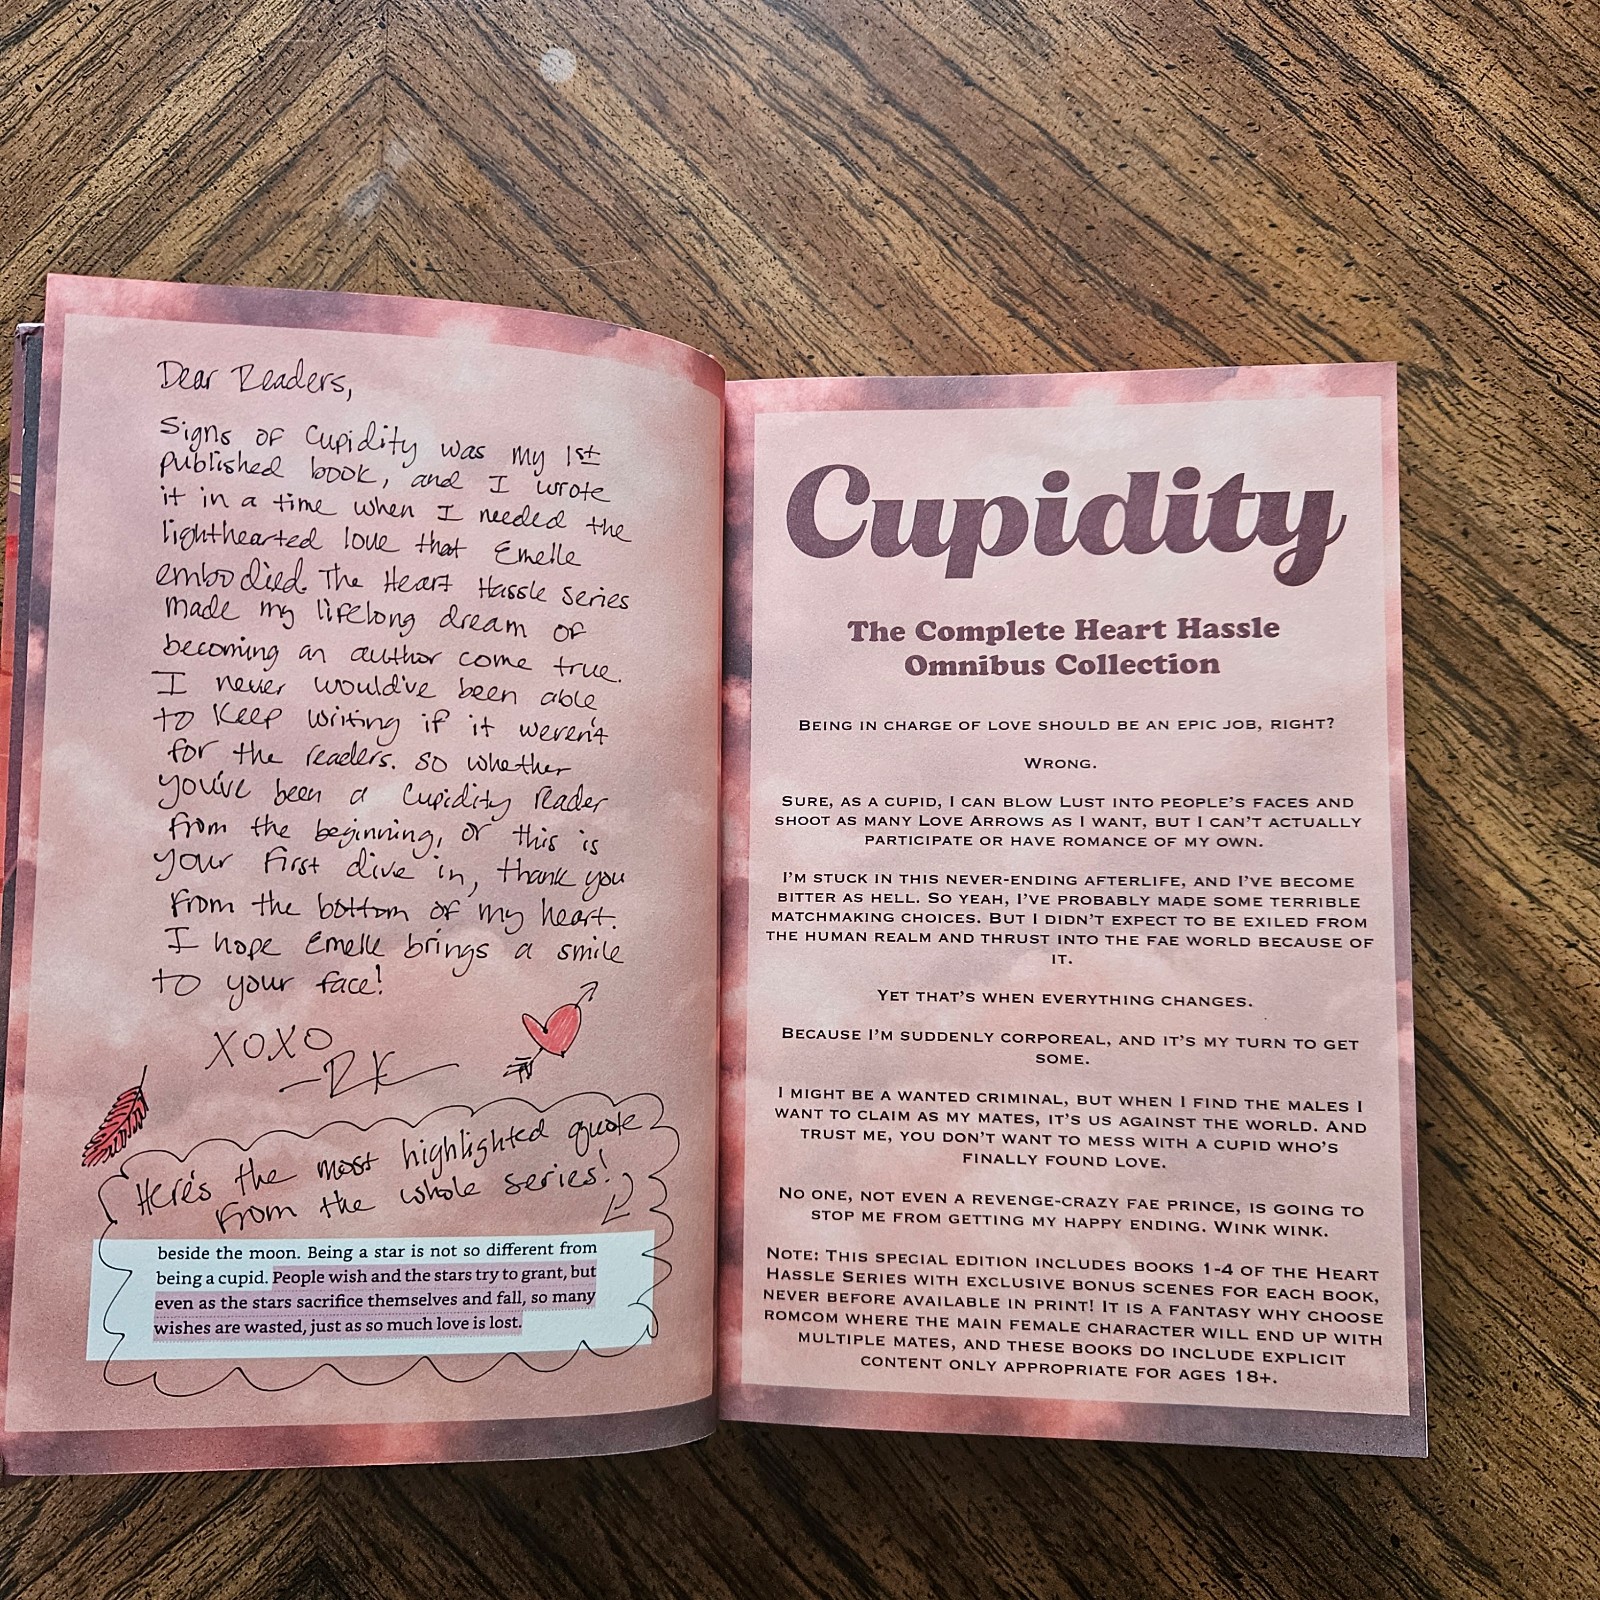 Dear Readers,
Signs of Cupidity was my 1st
published book, and I wrote
it in a time when I needed the
lighthearted love that Emelle
embodied. The Heart Hassle Series
made my lifelong dream of
becoming an author come true.
I never would've been able
to keep writing if it weren't
for the readers. So whether
you've been a Cupidity Reader
from the beginning, or this is
your first dive in, thank you
from the bottom of my heart.
I hope Emelle brings a smile
to your face!
XOXO
-RK
Here's the most highlighted quote
from the whole series!
beside the moon. Being a star is not so different from
being a cupid. People wish and the stars try to grant, but
even as the stars sacrifice themselves and fall, so many
wishes are wasted, just as so much love is lost.
Cupidity
The Complete Heart Hassle
Omnibus Collection
Being in charge of love should be an epic job, right?
Wrong.
Sure, as a cupid, I can blow Lust into people's faces and
shoot as many Love Arrows as I want, but I can't actually
participate or have romance of my own.
I'm stuck in this never-ending afterlife, and I've become
bitter as hell. So yeah, I've probably made some terrible
matchmaking choices. But I didn't expect to be exiled from
the human realm and thrust into the fae world because of
it.
Yet that's when everything changes.
Because I'm suddenly corporeal, and it's my turn to get
some.
I might be a wanted criminal, but when I find the males I
want to claim as my mates, it's us against the world. And
trust me, you don't want to mess with a cupid who's
finally found love.
No one, not even a revenge-crazy fae prince, is going to
stop me from getting my happy ending. Wink wink.
Note: This special edition includes books 1-4 of the Heart
Hassle Series with exclusive bonus scenes for each book,
never before available in print! It is a fantasy why choose
romcom where the main female character will end up with
multiple mates, and these books do include explicit
content only appropriate for ages 18+.